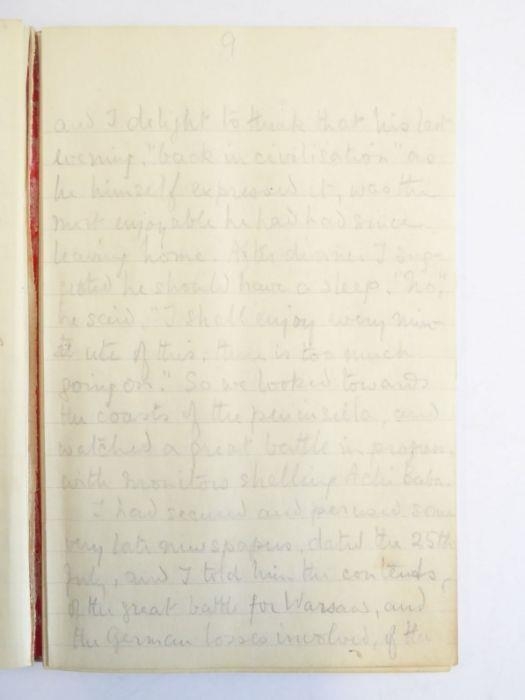 9
and I delight to think that his last
evening, "back in civilisation" as
he himself expressed it, was the
most enjoyable he had had since
leaving home. After dinner I sugg-
ested he should have a sleep. "No",
he said, "I shall enjoy every min-
ute of this, there is too much
going on." So we looked towards
the coasts of the peninsula, and
watched a great battle in progress,
with monitors shelling Achi Baba.
I had secured and perused some
very late newspapers, dated the 25th
July, and I told him the contents,
of the great battle for Warsaw, and
the German losses involved, of the